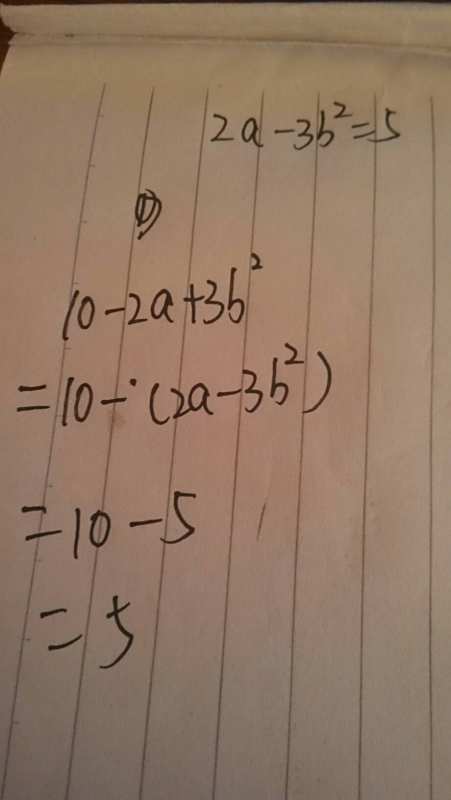 2a-3b²=5
①
10-2a+3b²
=10-(2a-3b²)
=10-5
=5